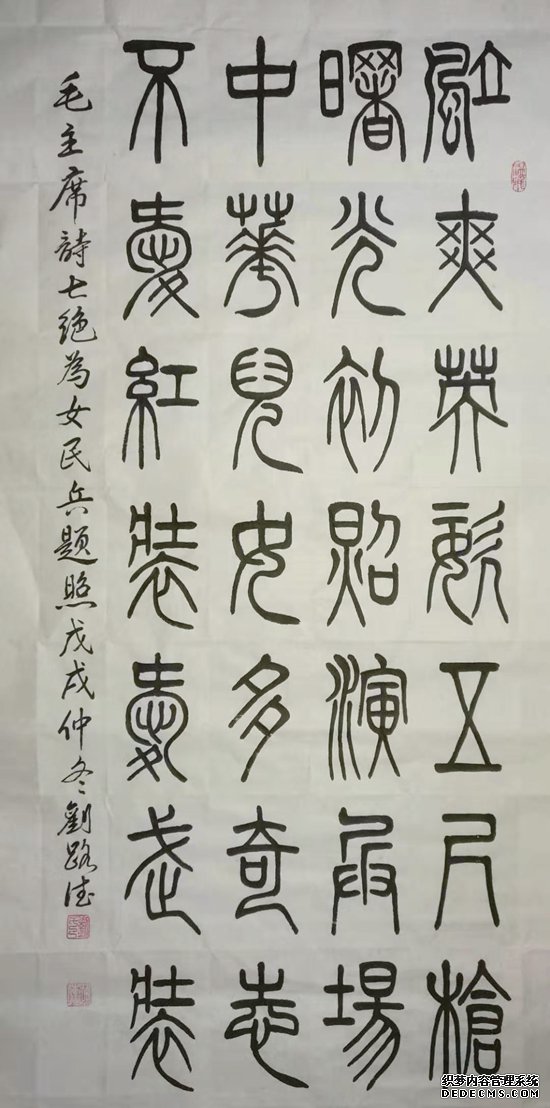 颯爽英姿五尺槍
曙光初照演兵場
中華兒女多奇志
不愛紅裝愛武裝
毛主席詩七绝為女民兵題照戊戌仲冬劉路法
织梦内容管理系统
DEDECMS.COM